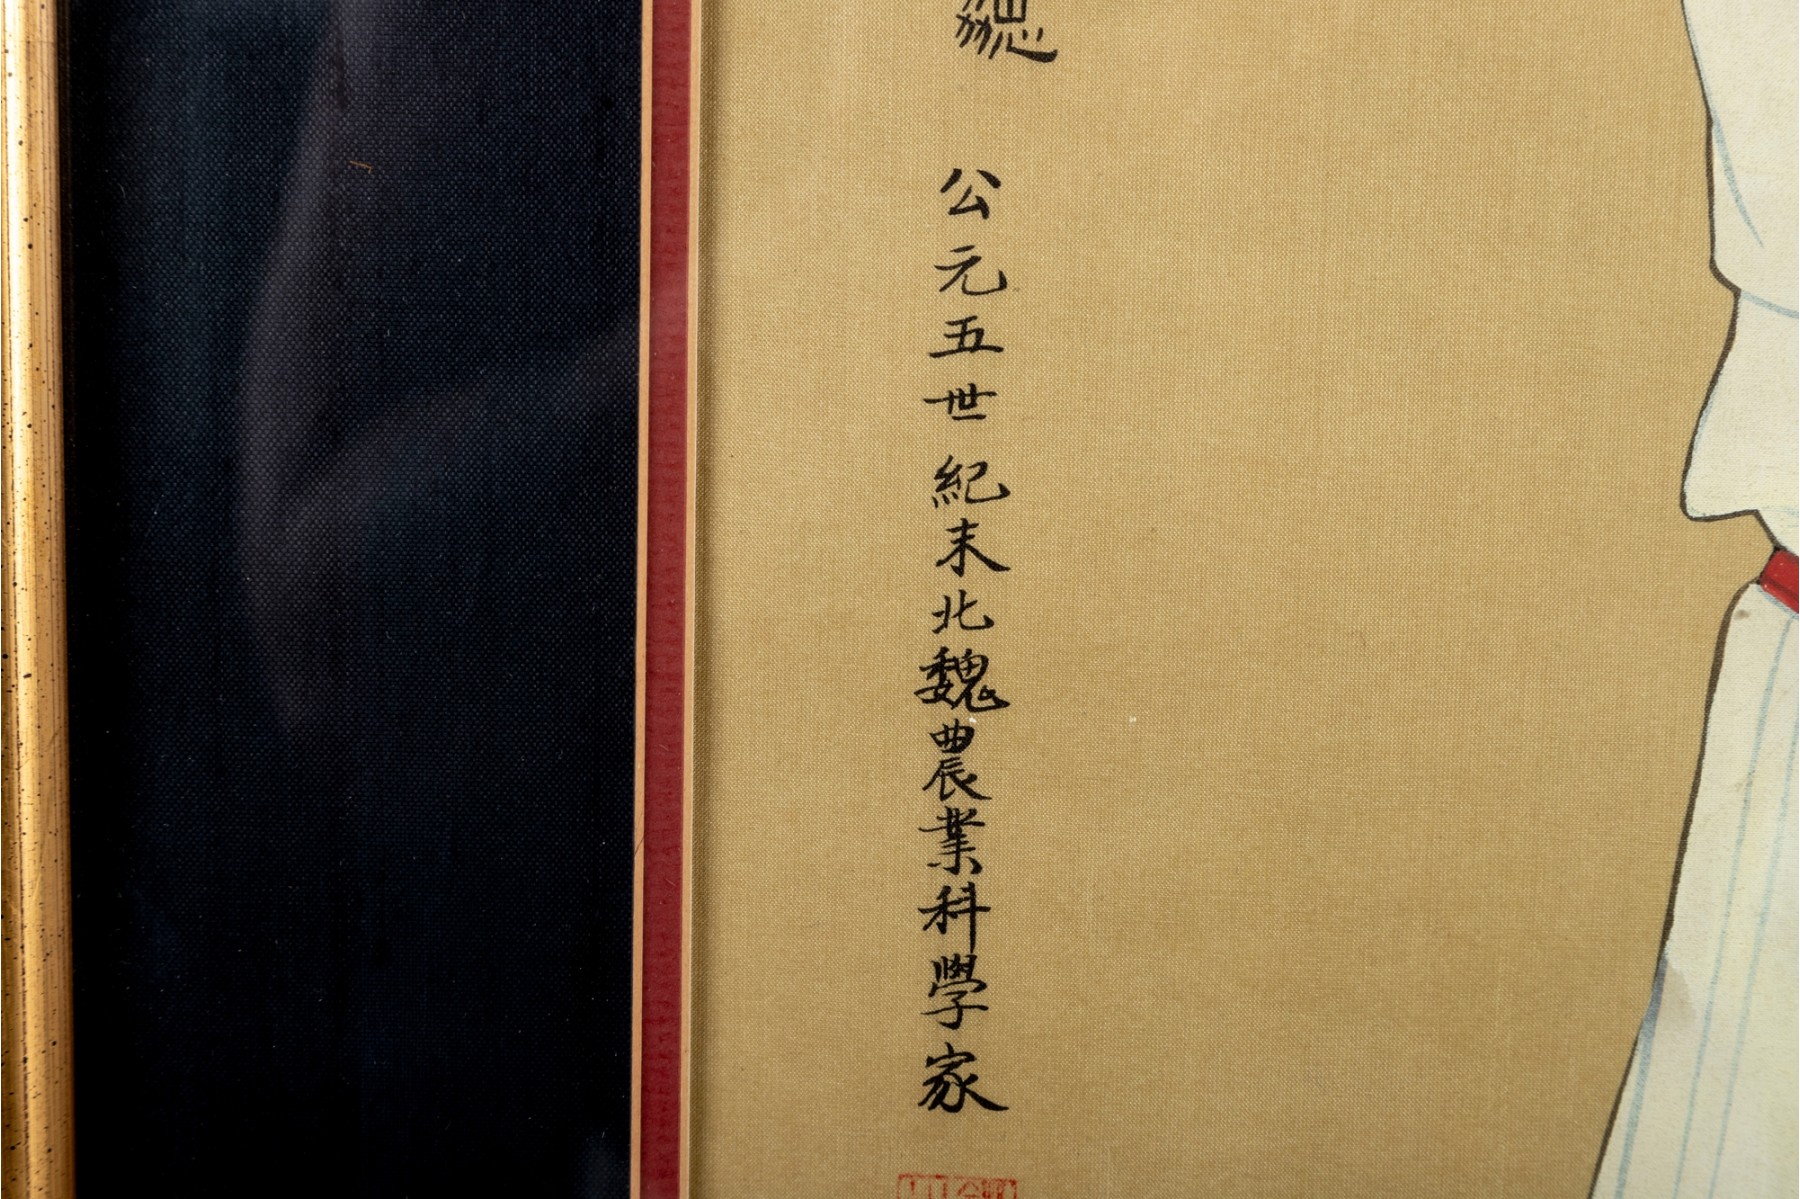 勰
公元五世紀末北魏農業科學家